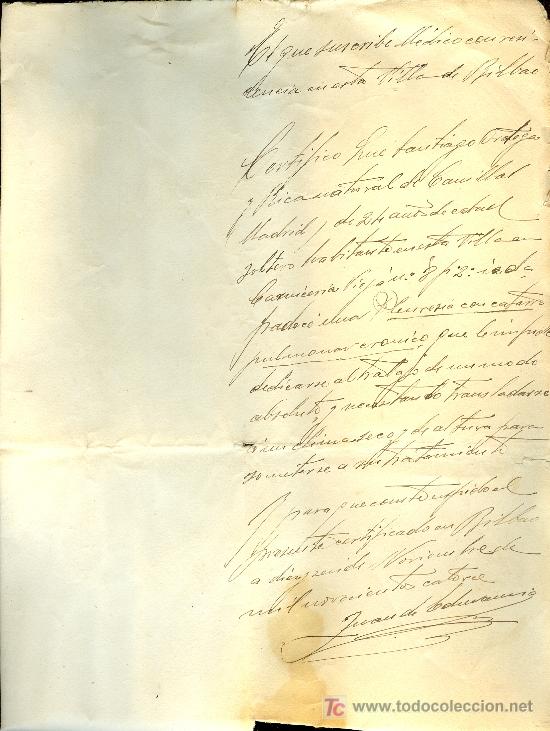 El que suscribe Médico con resi
dencia en esta Villa de Bilbao
Certifico Que Santiago Ortega
y Rica natural de Canillas
Madrid y de 24 años de edad
soltero habitante en esta Villa en
Carniceria Vieja nº 8 pº 2º izqda
padece una Pleuresia con catarro
pulmonar cronico que le impide
dedicarse al trabajo de un modo
absoluto y necesitando transladarse
a un clima seco y de altura para
someterse a un tratamiento
Y para que conste expido el
presente certificado en Bilbao
a de Noviembre de
mil novecientos catorce
Juan de
TC www.todocoleccion.net